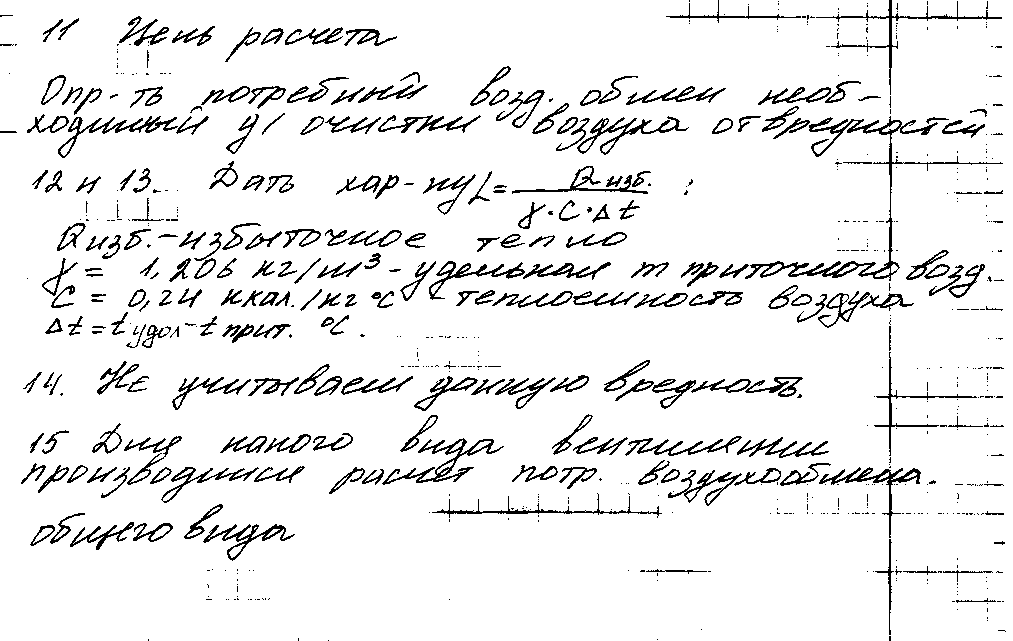 11 Цель расчета
Опр-ть потребный возд. обмен необ-
ходимый д/ очистки воздуха от вредностей
12 и 13. Дать хар-ку L = Q изб. / γ·C·Δt :
Q изб. - избыточное тепло
γ = 1,206 кг/m³ - удельная m приточного возд.
C = 0,24 ккал./кг °C - теплоемкость воздуха
Δt = t удал - t прит. °C.
14. Не учитываем данную вредность.
15 Для какого вида вентиляции
производился расчет потр. воздухообмена.
общего вида